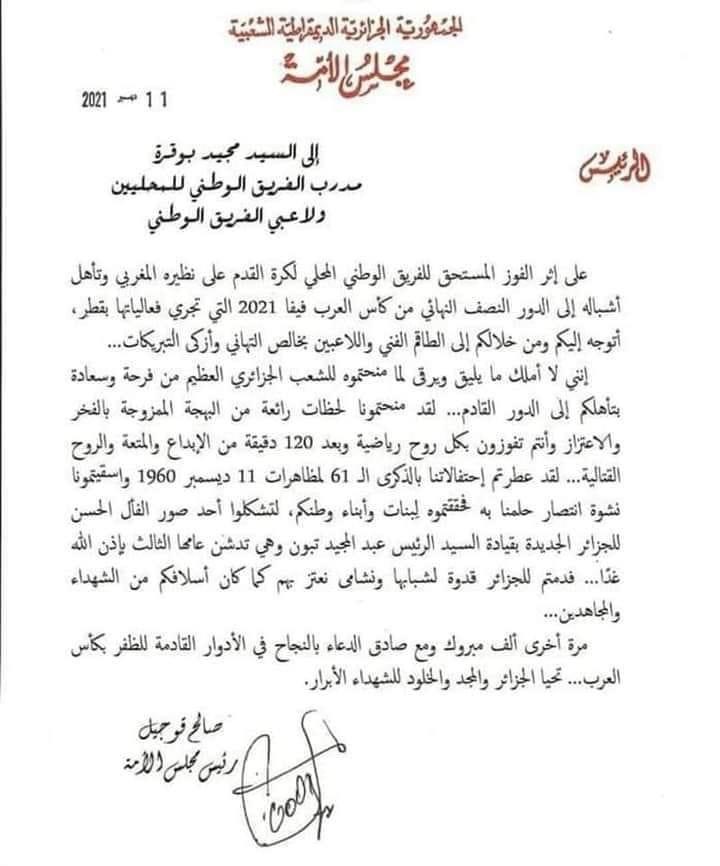 الجمهورية الجزائرية الديمقراطية الشعبية
مجلس الأمة
11 ديسمبر 2021
الرئيس
إلى السيد مجيد بوقرة
مدرب الفريق الوطني للمحليين
ولاعبي الفريق الوطني
على إثر الفوز المستحق للفريق الوطني المحلي لكرة القدم على نظيره المغربي وتأهل
أشباله إلى الدور النصف النهائي من كأس العرب فيفا 2021 التي تجري فعالياتها بقطر،
أتوجه إليكم ومن خلالكم إلى الطاقم الفني واللاعبين بخالص التهاني وأزكى التبريكات...
إنني لا أملك ما يليق ويرقى لما منحتموه للشعب الجزائري العظيم من فرحة وسعادة
بتأهلكم إلى الدور القادم... لقد منحتمونا لحظات رائعة من البهجة الممزوجة بالفخر
والاعتزاز وأنتم تفوزون بكل روح رياضية وبعد 120 دقيقة من الإبداع والمتعة والروح
القتالية... لقد عطرتم إحتفالاتنا بالذكرى الـ 61 لمظاهرات 11 ديسمبر 1960 واسقيتمونا
نشوة انتصار حلمنا به فحققتموه لبنات وأبناء وطنكم، لتشكلوا أحد صور الفأل الحسن
للجزائر الجديدة بقيادة السيد الرئيس عبد المجيد تبون وهي تدشن عامها الثالث بإذن الله
غدًا... فدمتم للجزائر قدوة لشبابها ونشامى نعتز بهم كما كان أسلافكم من الشهداء
والمجاهدين...
مرة أخرى ألف مبروك ومع صادق الدعاء بالنجاح في الأدوار القادمة للظفر بكأس
العرب... تحيا الجزائر والمجد والخلود للشهداء الأبرار.
صالح قوجيل
رئيس مجلس الأمة